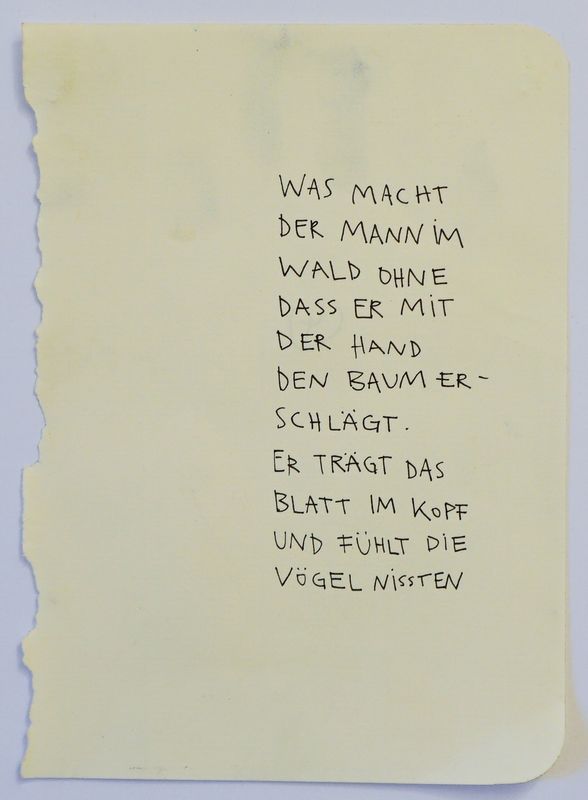 WAS MACHT
DER MANN iM
WALD OHNE
DASS ER MiT
DER HAND
DEN BAUM ER-
SCHLÄGT.
ER TRÄGT DAS
BLATT IM KOPF
UND FÜHLT DIE
VÖGEL NiSSTEN